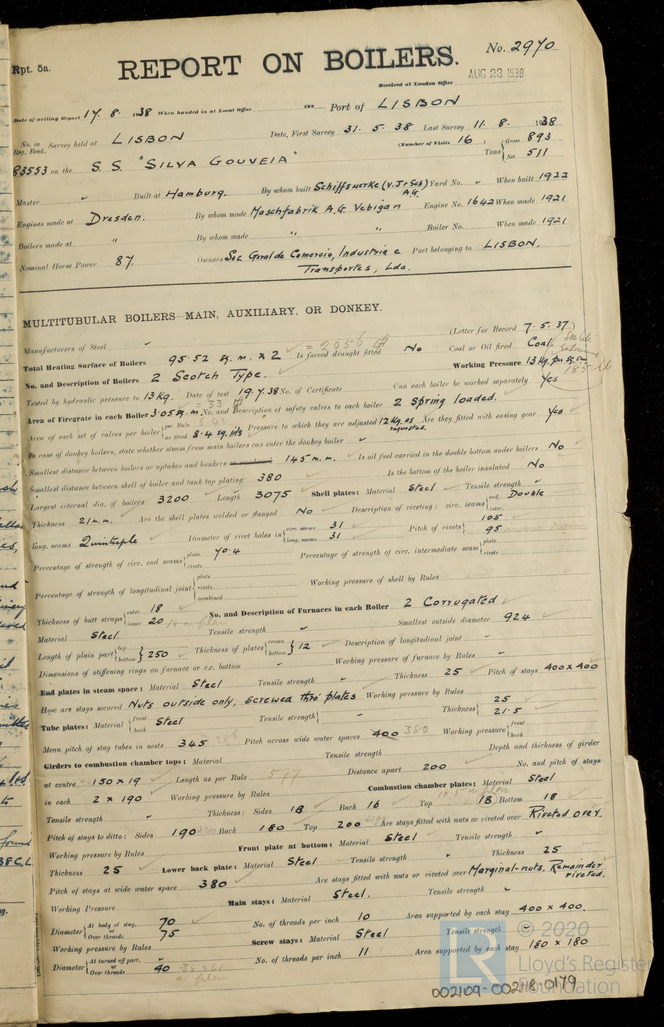 Rpt. 5a.
REPORT ON BOILERS.
No. 2970
Received at London Office AUG 23 1938
Date of writing Report 17. 8. 1938 When handed in at Local Office Port of LISBON
No. in Reg. Book. Survey held at LISBON Date, First Survey 31. 5. 38 Last Survey 11. 8. 1938
(Number of Visits 16)
83553 on the S.S. "SILVA GOUVEIA" Tons {Gross 893 Net 511
Master " Built at Hamburg. By whom built Schiffswerke (v. Jr Seb) A.G. Yard No. " When built 1922
Engines made at Dresden. By whom made Maschfabrik A.G. Vebigan Engine No. 1642 When made 1921
Boilers made at " By whom made " " Boiler No. When made 1921
Nominal Horse Power 87. Owners Soc Geral de Comercio, Industria e Transportes, Lda. Port belonging to LISBON.
MULTITUBULAR BOILERS—MAIN, AUXILIARY, OR DONKEY.
Manufacturers of Steel " (Letter for Record 7. 5. 37.)
Total Heating Surface of Boilers 95.52 sq. m. x 2 = 2056 Is forced draught fitted No Coal or Oil fired Coal.
No. and Description of Boilers 2 Scotch Type. Working Pressure 13 Kg. per sq. cm 185 lb
Tested by hydraulic pressure to 13 Kg. Date of test 19.7.38 No. of Certificate Can each boiler be worked separately Yes
Area of Firegrate in each Boiler 3.05 sq. m. = 33 No. and Description of safety valves to each boiler 2 Spring loaded.
Area of each set of valves per boiler {per Rule as fitted 8.4 sq. ins Pressure to which they are adjusted 12 Kg. as requested. Are they fitted with easing gear Yes
In case of donkey boilers, state whether steam from main boilers can enter the donkey boiler "
Smallest distance between boilers or uptakes and bunkers 145 m.m. Is oil fuel carried in the double bottom under boilers No
Smallest distance between shell of boiler and tank top plating 380 Is the bottom of the boiler insulated No
Largest internal dia. of boilers 3200 Length 3075 Shell plates: Material Steel Tensile strength "
Thickness 21 m.m. Are the shell plates welded or flanged No Description of riveting: circ. seams {end Double inter.
long. seams Quintuple Diameter of rivet holes in {circ. seams 31 long. seams 31 Pitch of rivets {105 95
Percentage of strength of circ. end seams {plate 70.4 rivets Percentage of strength of circ. intermediate seam {plate rivets
Percentage of strength of longitudinal joint {plate rivets combined Working pressure of shell by Rules
Thickness of butt straps {outer 18 inner 20 No. and Description of Furnaces in each Boiler 2 Corrugated
Material Steel. Tensile strength " Smallest outside diameter 924
Length of plain part {top bottom} 250 Thickness of plates {crown bottom} 12 Description of longitudinal joint "
Dimensions of stiffening rings on furnace or c.c. bottom " Working pressure of furnace by Rules
End plates in steam space: Material Steel Tensile strength " Thickness 25 Pitch of stays 400 x 400
How are stays secured Nuts outside only, Screwed thro' plates Working pressure by Rules
Tube plates: Material {front back Steel Tensile strength{ " Thickness{ 25 21.5
Mean pitch of stay tubes in nests 345 Pitch across wide water spaces 400 380 Working pressure {front back
Girders to combustion chamber tops: Material Tensile strength Depth and thickness of girder
at centre 150 x 19 Length as per Rule 597 Distance apart 200 No. and pitch of stays
in each 2 x 190 Working pressure by Rules Combustion chamber plates: Material Steel
Tensile strength " Thickness: Sides 18 Back 16 Top 18 Bottom 18
Pitch of stays to ditto: Sides 190 Back 180 Top 200 Are stays fitted with nuts or riveted over Riveted over.
Working pressure by Rules Front plate at bottom: Material Steel Tensile strength "
Thickness 25 Lower back plate: Material Steel Tensile strength " Thickness 25
Pitch of stays at wide water space 380 Are stays fitted with nuts or riveted over Marginal-nuts. Remainder riveted.
Working Pressure Main stays: Material Steel. Tensile strength "
Diameter {At body of stay, 70 or Over threads 75 No. of threads per inch 10 Area supported by each stay 400 x 400.
Working pressure by Rules Screw stays: Material Steel Tensile strength
Diameter {At turned off part, " or Over threads 40 No. of threads per inch 11 Area supported by each stay 180 x 180
© 2020
LR Lloyd's Register Foundation
002109-002118-0179